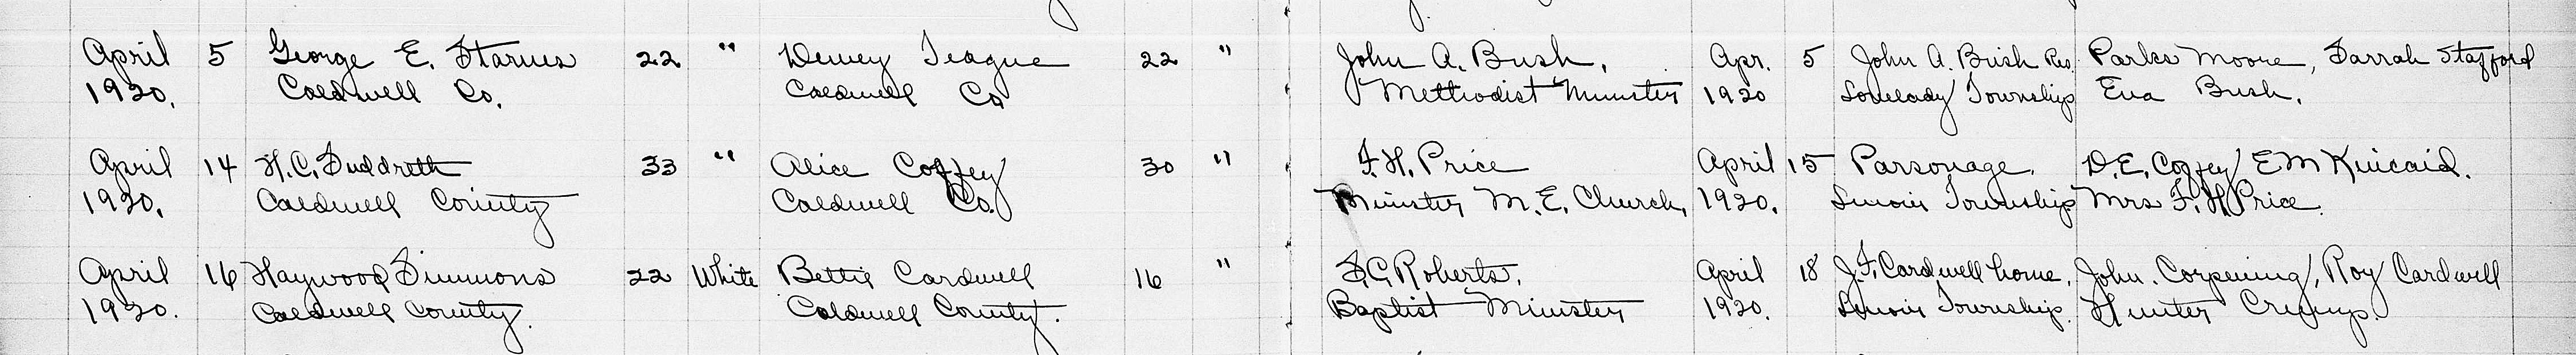 April 5 George E. Starnes 22 " Dewey Teague 22 " John A. Bush, Apr. 5 John A. Bush Res. Parks Moore, Farrah Stafford
1920. Caldwell Co. Caldwell Co Methodist Minister 1920 Lovelady Township Eva Bush.
April 14 H.C. Suddreth 33 " Alice Coffey 30 " F.H. Price April 15 Parsonage. D.E. Coffey E M Kincaid.
1920. Caldwell County Caldwell Co. Minister M.E. Church, 1920. Lenoir Township Mrs F.H. Price.
April 16 Haywood Simmons 22 White Bettie Cardwell 16 " S.C. Roberts. April 18 J.F. Cardwell home, John. Corpening, Roy Cardwell
1920. Caldwell County. Caldwell County. Baptist Minister 1920. Lenoir Township. Hunter Crump.